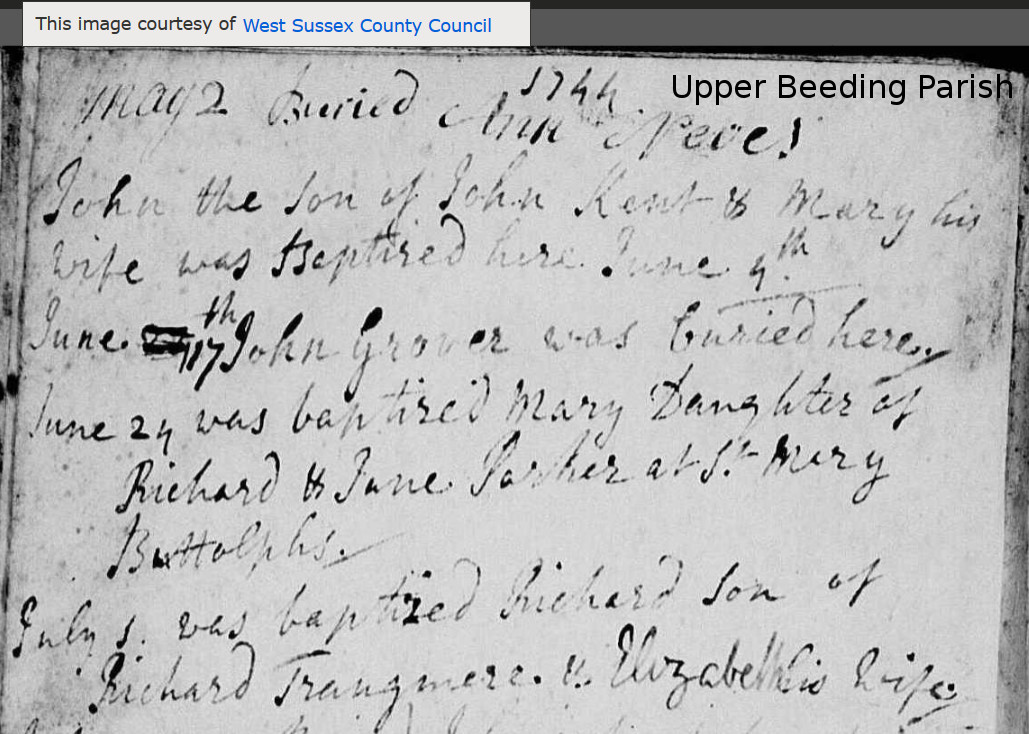 This image courtesy of West Sussex County Council
Upper Beeding Parish
1744
May 2 Buried Ann
John the Son of John Kent & Mary his
wife was Baptized here June 4th
June 17th John Grover was buried here.
June 24 was baptized Mary Daughter of
Richard & Jane Parker at St Mary
Buttolphs.
July 1. was baptized Richard Son of
Richard Trangmere. & Elizabeth his Wife.